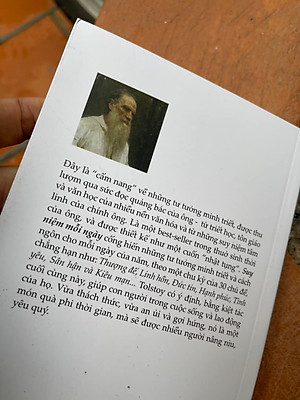 Đây là “cẩm nang” về những tư tưởng minh triết, được thu
lượm qua sức đọc quảng bác của ông - từ triết học, tôn giáo
và văn học của nhiều nền văn hóa và từ những suy niệm tâm
linh của chính ông. Là một best-seller trong thuở sinh thời
của ông, và được thiết kế như một cuốn “nhật tụng”. Suy
niệm mỗi ngày cống hiến những tư tưởng minh triết và cách
ngôn cho mỗi ngày của năm, theo một chu kỳ của 30 chủ đề,
chẳng hạn như: Thượng đế, Linh hồn, Đức tin, Hạnh phúc, Tình
yêu, Sân hận và Kiêu mạn... Tolstoy có ý định, bằng kiệt tác
cuối cùng này, giúp con người trong cuộc sống và lao động
của họ. Vừa thách thức, vừa an ủi và gợi hứng, nó là một
món quà phi thời gian, mà sẽ được nhiều người nâng niu,
yêu quý.